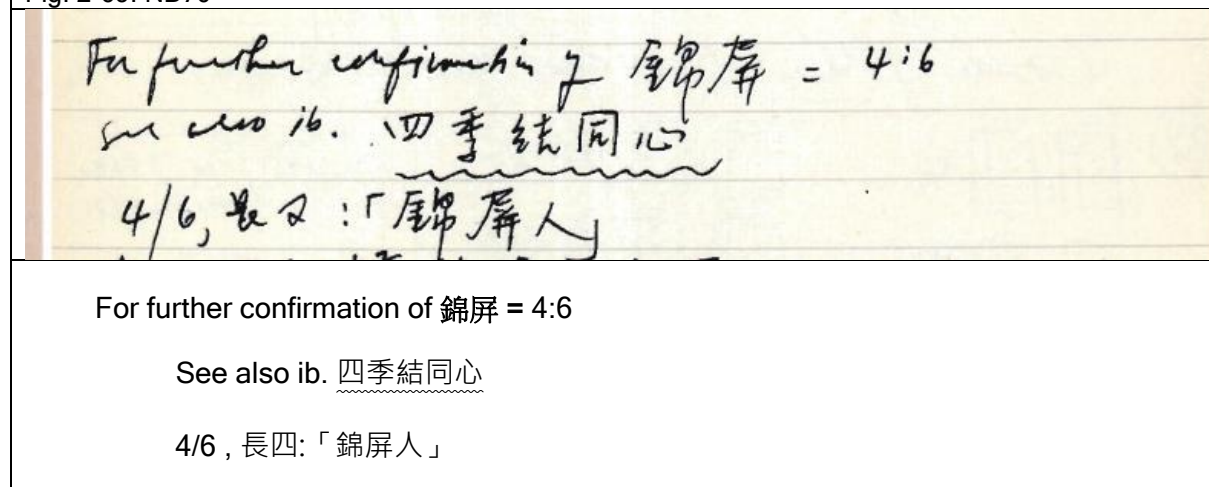 For further confirmation of 錦屏 = 4:6
see also ib. 四季結同心
4/6, 長又:「錦屏人」
For further confirmation of 錦屏 = 4:6
See also ib. 四季結同心
4/6 , 長四:「錦屏人」